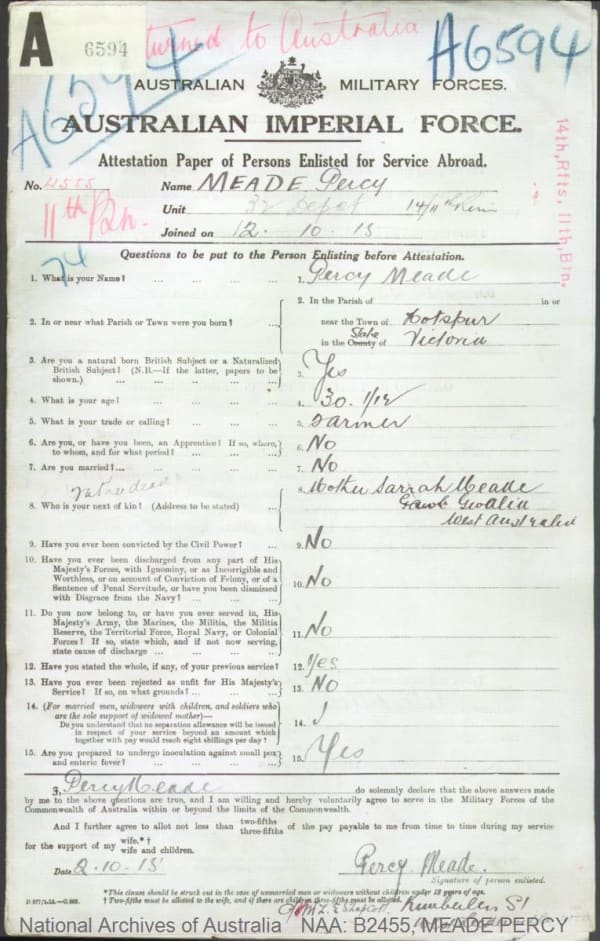 A
6594
turned to Australia
A6594
A6594
AUSTRALIAN MILITARY FORCES.
AUSTRALIAN IMPERIAL FORCE.
Attestation Paper of Persons Enlisted for Service Abroad.
No. 4555 Name MEADE Percy
11th Bn. Unit 32 Depot 14/11th Rein
Joined on 12. 10. 15
14th, Rfts, 11th, Btn.
Questions to be put to the Person Enlisting before Attestation.
74
1. What is your Name? ... ... ... 1. Percy Meade
2. In or near what Parish or Town were you born? ... 2. In the Parish of in or
near the Town of Hotspur
in the County of State Victoria
3. Are you a natural born British Subject or a Naturalized
British Subject? (N.B.—If the latter, papers to be
shown.) ... ... ... ... 3. Yes
4. What is your age? ... ... ... 4. 30. 1/12
5. What is your trade or calling? ... ... ... 5. Farmer
6. Are you, or have you been, an Apprentice? If so, where,
to whom, and for what period? ... ... ... 6. No
7. Are you married?... ... ... ... 7. No
Father dead
8. Who is your next of kin? (Address to be stated) ... 8. Mother Sarrah Meade
Gwalia
West Australia
9. Have you ever been convicted by the Civil Power? ... 9. No
10. Have you ever been discharged from any part of His
Majesty's Forces, with Ignominy, or as Incorrigible and
Worthless, or on account of Conviction of Felony, or of a
Sentence of Penal Servitude, or have you been dismissed
with Disgrace from the Navy? ... ... ... 10. No
11. Do you now belong to, or have you ever served in, His
Majesty's Army, the Marines, the Militia, the Militia
Reserve, the Territorial Force, Royal Navy, or Colonial
Forces? If so, state which, and if not now serving,
state cause of discharge ... ... ... ... 11. No
12. Have you stated the whole, if any, of your previous service? 12. Yes
13. Have you ever been rejected as unfit for His Majesty's
Service? If so, on what grounds? ... ... ... 13. No
14. (For married men, widowers with children, and soldiers who
are the sole support of widowed mother)—
Do you understand that no separation allowance will be issued
in respect of your service beyond an amount which
together with pay would reach eight shillings per day? 14.
15. Are you prepared to undergo inoculation against small pox
and enteric fever? ... ... ... ... 15. Yes
I, Percy Meade do solemnly declare that the above answers made
by me to the above questions are true, and I am willing and hereby voluntarily agree to serve in the Military Forces of the
Commonwealth of Australia within or beyond the limits of the Commonwealth.
And I further agree to allot not less than two-fifths three-fifths of the pay payable to me from time to time during my service
for the support of my wife.*† wife and children.
Date 2-10-15 Percy Meade.
Signature of person enlisted.
*This clause should be struck out in the case of unmarried men or widowers without children under 18 years of age.
† Two-fifths must be allotted to the wife, and if there are children three-fifths must be allotted.
Kimberley St
National Archives of Australia NAA: B2455, MEADE PERCY